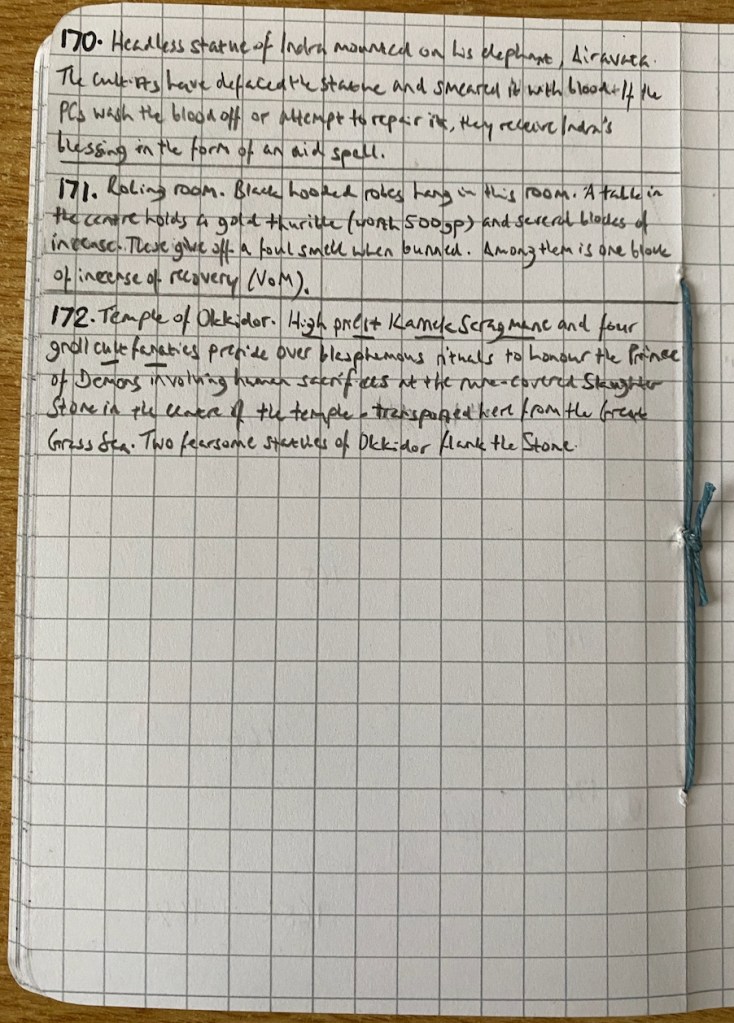 170. Headless statue of Indra mounted on his elephant, Airavata.
The cultists have defaced the statue and smeared it with blood. If the
PCs wash the blood off or attempt to repair it, they receive Indra's
blessing in the form of an aid spell.
171. Robing room. Black hooded robes hang in this room. A table in
the centre holds a gold thurible (worth 500gp) and several blocks of
incense. These give off a foul smell when burned. Among them is one block
of incense of recovery (VoM).
172. Temple of Okkidor. High priest Kamek Scragmane and four
gnoll cult fanatics preside over blasphemous rituals to honour the Prince
of Demons involving human sacrifices at the rune-covered Slaughter
Stone in the centre of the temple - transported here from the Great
Grass Sea. Two fearsome statues of Okkidor flank the Stone.